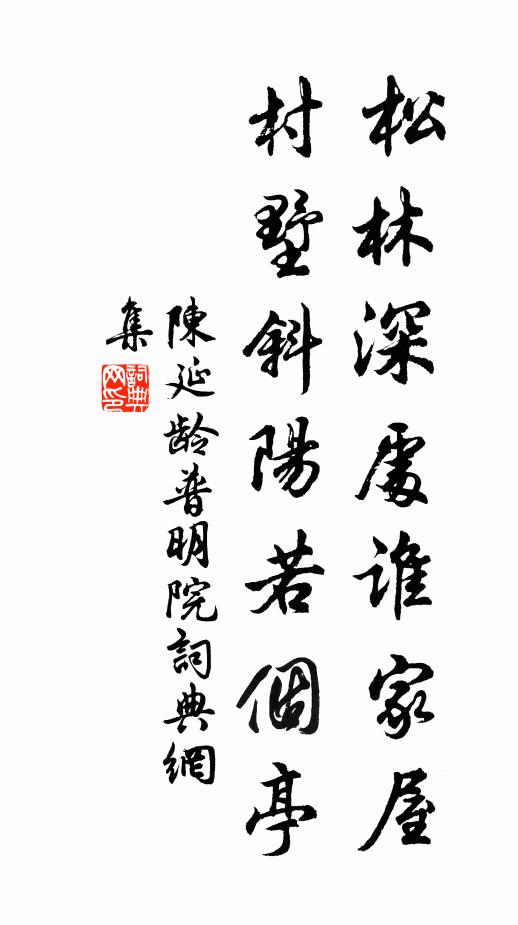 松林深處誰家屋
村墅斜陽若個亭
陳延齡普明院詞典網
集
詞典网印